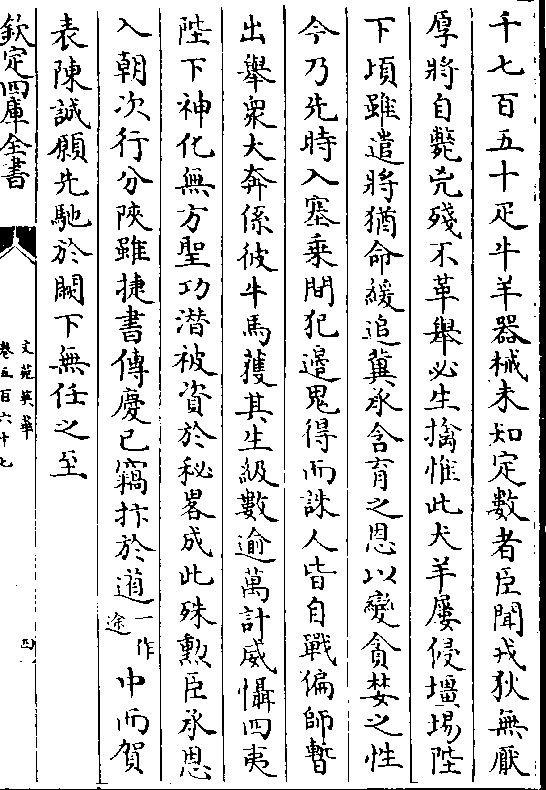 千七百五十疋牛羊器械未知定數者臣聞戎狄無厭
厚將自斃凶殘不革舉必生擒惟此犬羊屢侵壃場陛
下頃雖遣將猶命緩追冀承含育之恩以變貪婪之性
今乃先時入塞乗間犯邉鬼得而誅人皆自戰偏師暫
出舉衆大奔係彼牛馬獲其生級數逾萬計威懾四夷
陛下神化無方聖功潜被資於秘畧成此殊勲臣承恩
入朝次行分陜雖捷書傳慶已竊抃於道一作途中而賀
表陳誠願先馳於闕下無任之至
欽定四庫全書
文苑英華
卷五百六十七
四